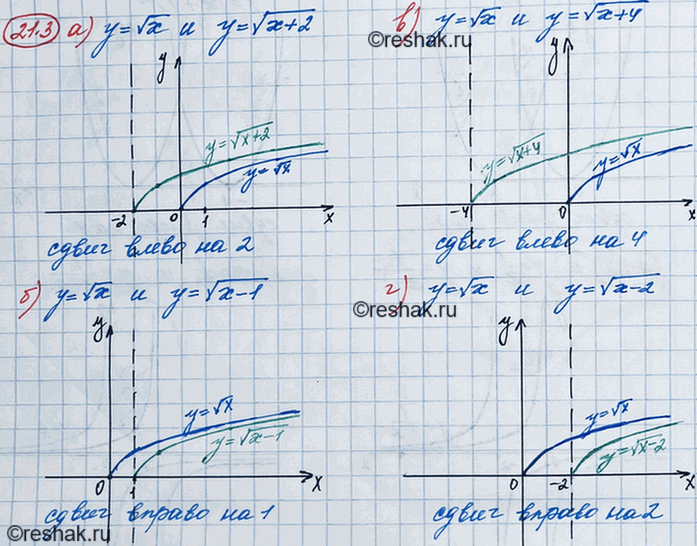 21.3 а) y=√x и y=√x+2
y
y=√x+2
y=√x
-2 0 1 x
сдвиг влево на 2
в) y=√x и y=√x+4
©reshak.ru
y
y=√x+4
y=√x
-4 0 x
сдвиг влево на 4
б) y=√x и y=√x-1
y
y=√x
y=√x-1
0 1 x
сдвиг вправо на 1
©reshak.ru
г) y=√x и y=√x-2
©reshak.ru
y
y=√x
y=√x-2
0 -2 x
сдвиг вправо на 2